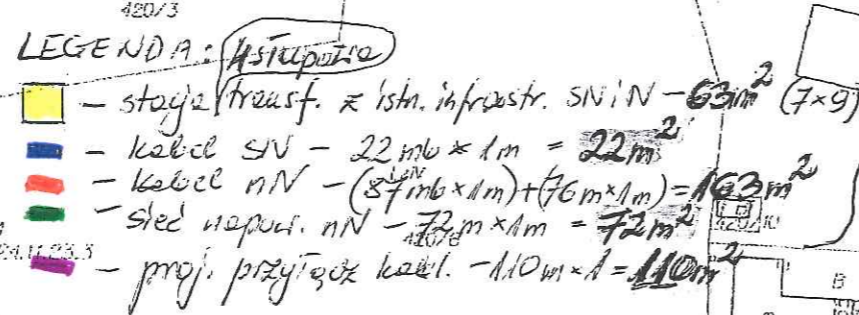 420/3
LEGENDA: słupowa
– stacja transf. z istn. infrastr. SN i N – 63m² (7×9)
– kabel SN – 22 mb × 1m = 22m²
– kabel nN – (87mb×1m)+(76m×1m)=163m²
– sieć napow. nN – 72m×1m = 72m²
– proj. przyłącz kabl. – 110m×1 = 110m²
B